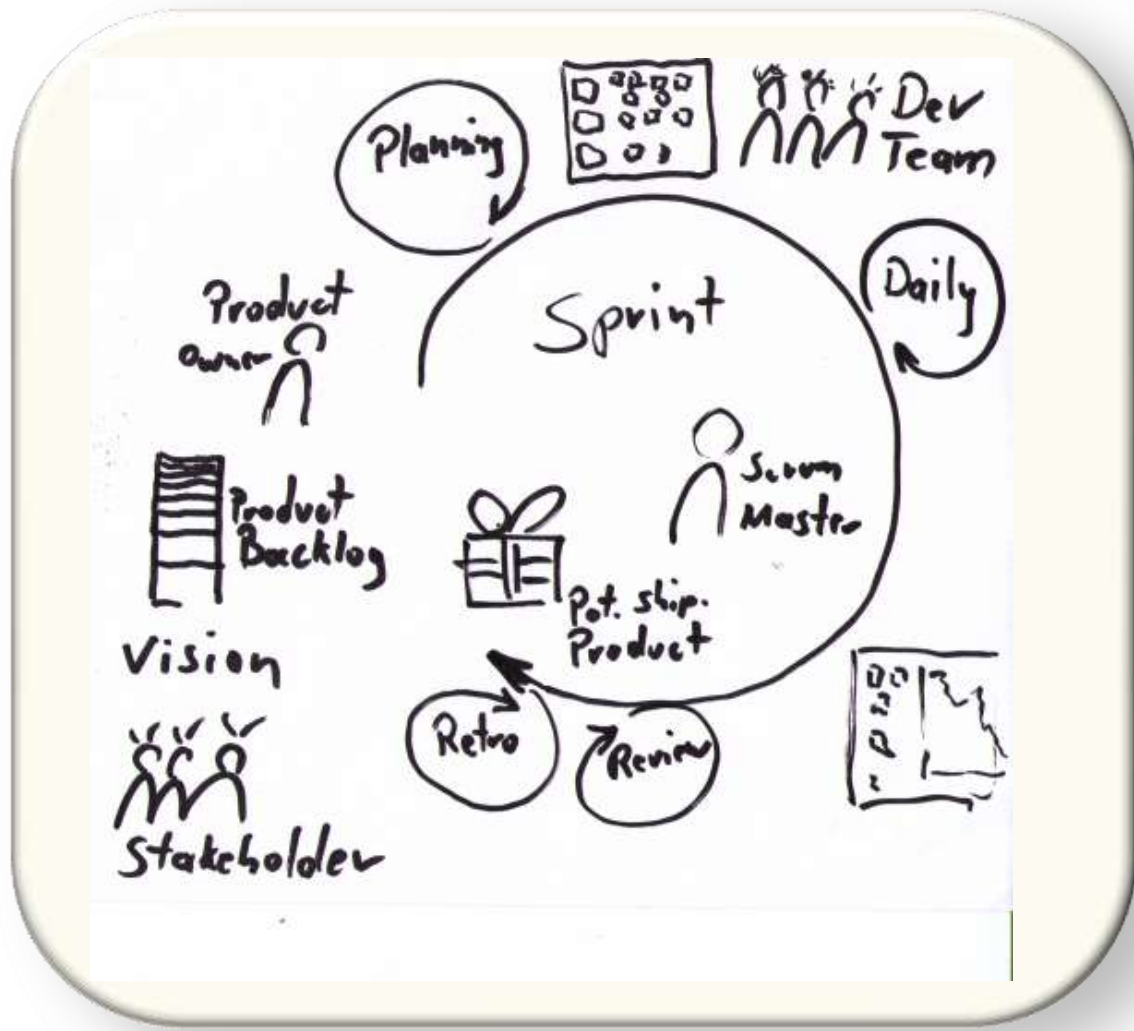 Planning
Dev
Team
Daily
Sprint
Product
Owner
Scrum
Master
Product
Backlog
Pot. ship.
Product
Vision
Retro
Review
Stakeholder